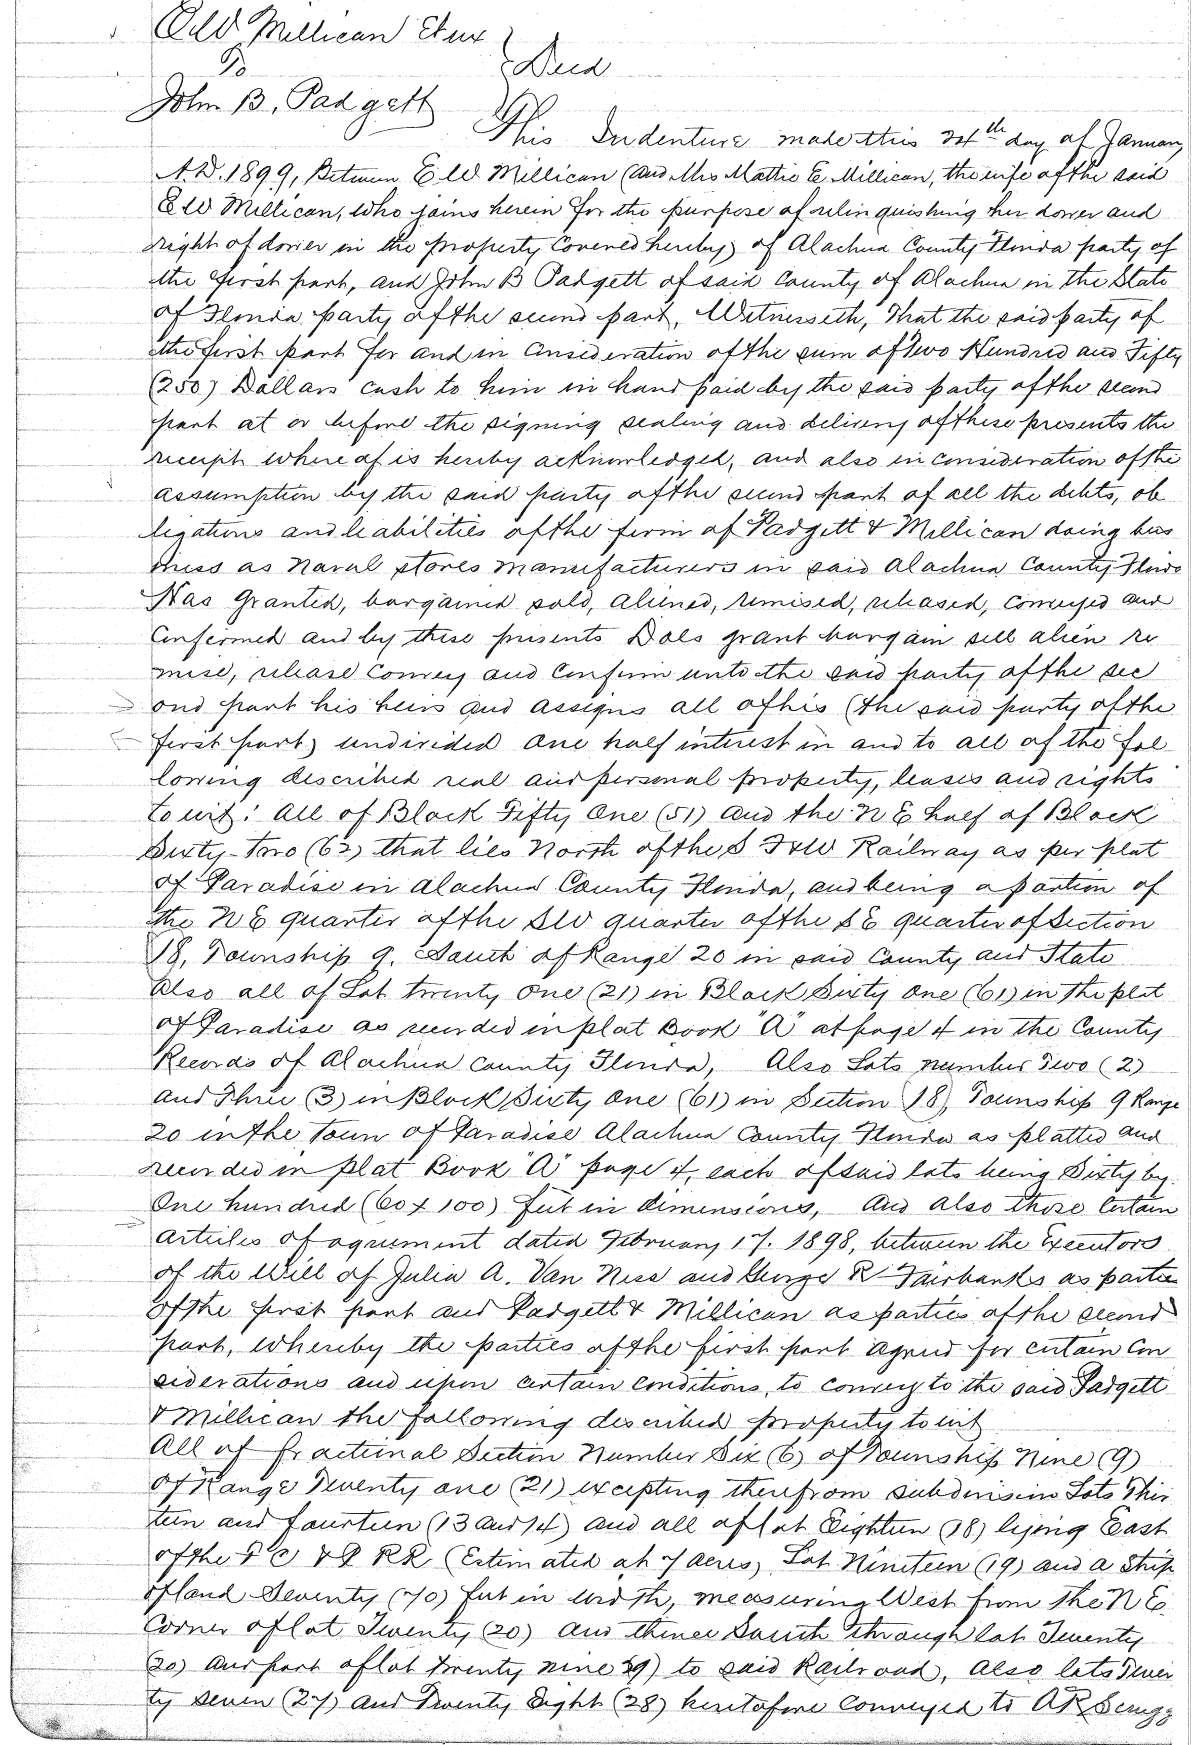 E W Millican Etux
To } Deed
John B. Padgett
This Indenture made this 24th day of January
A.D. 1899, Between E W Millican (and Mrs Mattie E Millican, the wife of the said
E W Millican, who joins herein for the purpose of relinquishing her dower and
right of dower in the property covered hereby) of Alachua County Florida party of
the first part, and John B Padgett of said County of Alachua in the State
of Florida party of the second part, Witnesseth, That the said party of
the first part for and in consideration of the sum of Two Hundred and Fifty
(250) Dollars cash to him in hand paid by the said party of the second
part at or before the signing sealing and delivery of these presents the
receipt whereof is hereby acknowledged, and also in consideration of the
assumption by the said party of the second part of all the debts, ob
ligations and liabilities of the firm of Padgett & Millican doing bus
iness as Naval stores manufacturers in said Alachua County Florida
Has Granted, bargained sold, aliened, remised, released, conveyed and
Confirmed and by these presents Does grant bargain sell alien re
mise, release convey and confirm unto the said party of the sec
ond part his heirs and assigns all of his (the said party of the
first part) undivided one half interest in and to all of the fol
lowing described real and personal property, leases and rights
to wit: All of Block Fifty One (51) and the N E half of Block
Sixty-Two (62) that lies North of the S F & W Railway as per plat
of Paradise in Alachua County Florida, and being a portion of
the N E quarter of the SW quarter of the S E quarter of Section
18, Township 9, South of Range 20 in said County and State
Also all of Lot twenty one (21) in Block Sixty One (61) in the plat
of Paradise as recorded in plat Book "A" at page 4 in the County
Records of Alachua County Florida, Also Lots number Two (2)
and Three (3) in Block Sixty One (61) in Section 18, Township 9 Range
20 in the Town of Paradise Alachua County Florida as platted and
recorded in plat Book "A" page 4, each of said lots being Sixty by
One hundred (60 x 100) feet in dimensions, And Also those Certain
articles of agreement dated February 17. 1898, between the Executors
of the Will of Julia A. Van Ness and George R Fairbanks as parties
of the first part and Padgett & Millican as parties of the second
part, whereby the parties of the first part agreed for certain con
siderations and upon certain conditions, to convey to the said Padgett
& Millican the following described property to wit
All of fractional Section Number Six (6) of Township Nine (9)
of Range Twenty one (21) excepting therefrom subdivision Lots Thir
teen and fourteen (13 and 14) and all of lot Eighteen (18) lying East
of the F C & P RR (Estimated at 7 acres) Lot Nineteen (19) and a strip
of land Seventy (70) feet in width, measuring West from the N E
Corner of lot Twenty (20) and thence South through lot Twenty
(20) and part of lot twenty nine 29) to said Railroad, Also lots Twen
ty seven (27) and Twenty Eight (28) heretofore conveyed to A R